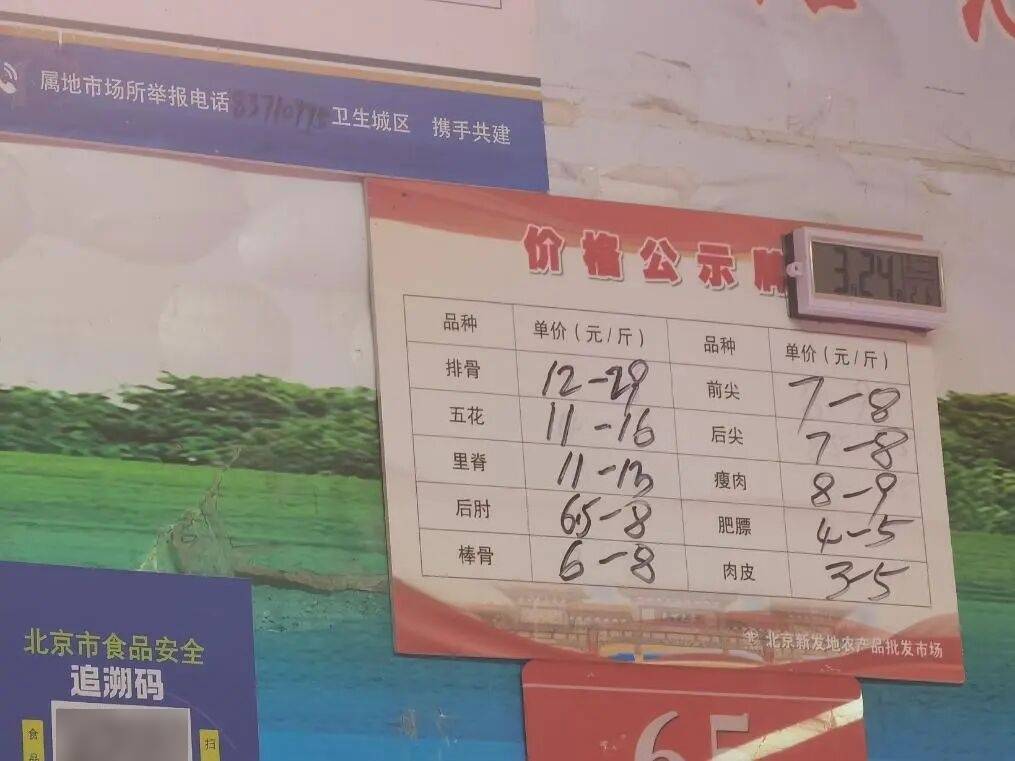 属地市场所举报电话 卫生城区 携手共建
价格公示牌
3 24
品种 单价（元/斤） 品种 单价（元/斤）
排骨 12-29 前尖 7-8
五花 11-16 后尖 7-8
里脊 11-13 瘦肉 8-9
后肘 6.5-8 肥膘 4-5
棒骨 6-8 肉皮 3-5
北京新发地农产品批发市场
北京市食品安全
追溯码
食品
扫
65